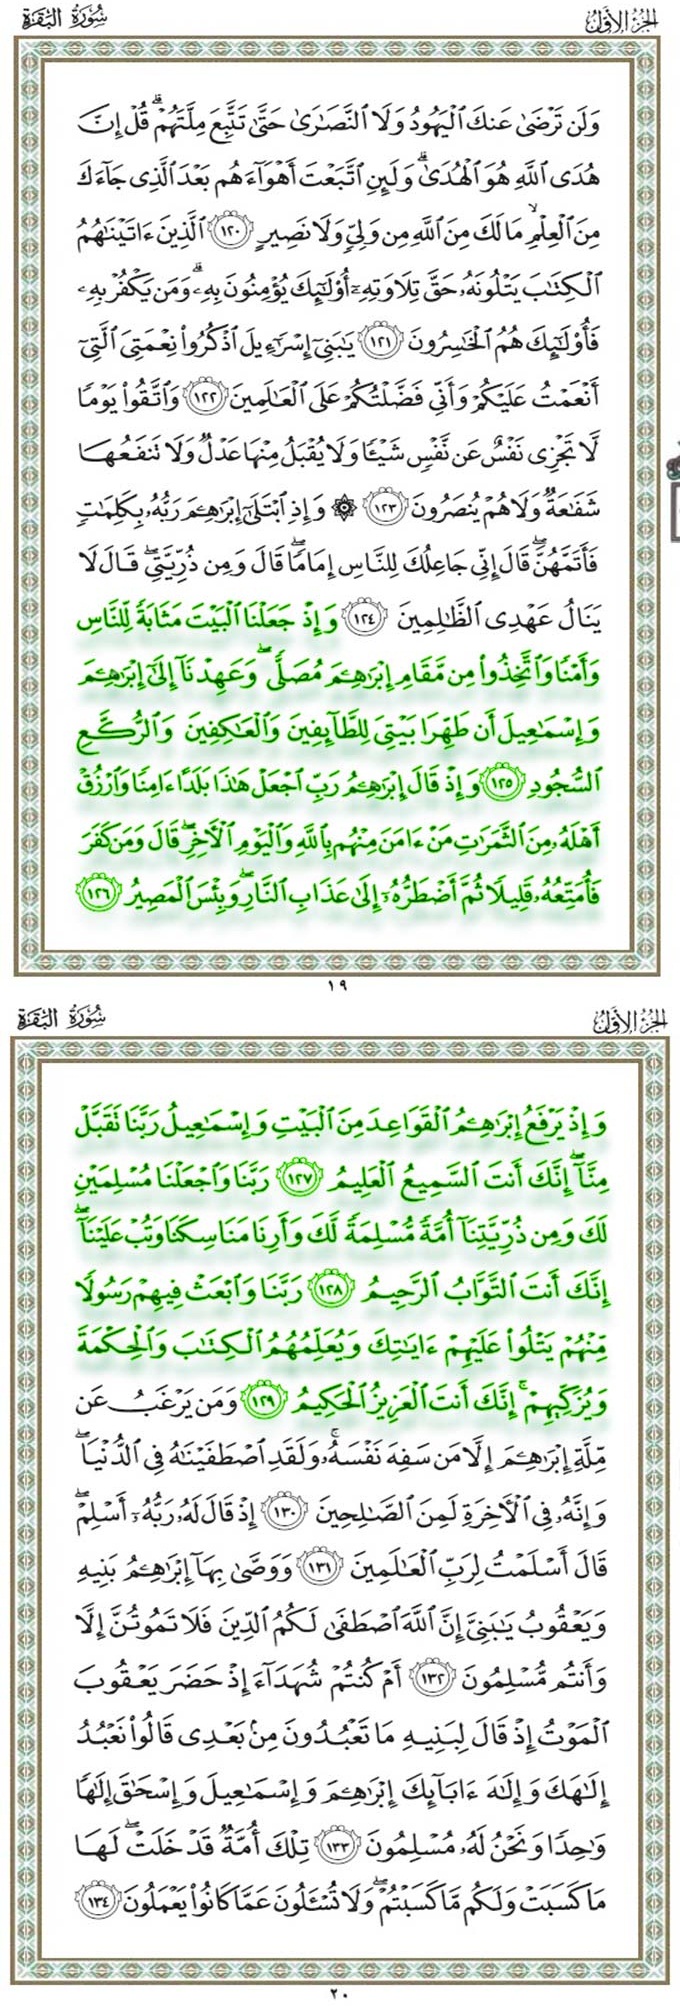 الجزء الأول سورة البقرة
وَلَن تَرْضَىٰ عَنكَ ٱلْيَهُودُ وَلَا ٱلنَّصَـٰرَىٰ حَتَّىٰ تَتَّبِعَ مِلَّتَهُمْ ۗ قُلْ إِنَّ
هُدَى ٱللَّهِ هُوَ ٱلْهُدَىٰ ۗ وَلَئِنِ ٱتَّبَعْتَ أَهْوَآءَهُم بَعْدَ ٱلَّذِى جَآءَكَ
مِنَ ٱلْعِلْمِ ۙ مَا لَكَ مِنَ ٱللَّهِ مِن وَلِىٍّ وَلَا نَصِيرٍ ١٢٠ ٱلَّذِينَ ءَاتَيْنَـٰهُمُ
ٱلْكِتَـٰبَ يَتْلُونَهُۥ حَقَّ تِلَاوَتِهِۦٓ أُو۟لَـٰٓئِكَ يُؤْمِنُونَ بِهِۦ ۗ وَمَن يَكْفُرْ بِهِۦ
فَأُو۟لَـٰٓئِكَ هُمُ ٱلْخَـٰسِرُونَ ١٢١ يَـٰبَنِىٓ إِسْرَٰٓءِيلَ ٱذْكُرُوا۟ نِعْمَتِىَ ٱلَّتِىٓ
أَنْعَمْتُ عَلَيْكُمْ وَأَنِّى فَضَّلْتُكُمْ عَلَى ٱلْعَـٰلَمِينَ ١٢٢ وَٱتَّقُوا۟ يَوْمًا
لَّا تَجْزِى نَفْسٌ عَن نَّفْسٍ شَيْـًٔا وَلَا يُقْبَلُ مِنْهَا عَدْلٌ وَلَا تَنفَعُهَا
شَفَـٰعَةٌ وَلَا هُمْ يُنصَرُونَ ١٢٣ ۞ وَإِذِ ٱبْتَلَىٰٓ إِبْرَٰهِـۧمَ رَبُّهُۥ بِكَلِمَـٰتٍ
فَأَتَمَّهُنَّ ۖ قَالَ إِنِّى جَاعِلُكَ لِلنَّاسِ إِمَامًا ۖ قَالَ وَمِن ذُرِّيَّتِى ۖ قَالَ لَا
يَنَالُ عَهْدِى ٱلظَّـٰلِمِينَ ١٢٤ وَإِذْ جَعَلْنَا ٱلْبَيْتَ مَثَابَةً لِّلنَّاسِ
وَأَمْنًا وَٱتَّخِذُوا۟ مِن مَّقَامِ إِبْرَٰهِـۧمَ مُصَلًّى ۖ وَعَهِدْنَآ إِلَىٰٓ إِبْرَٰهِـۧمَ
وَإِسْمَـٰعِيلَ أَن طَهِّرَا بَيْتِىَ لِلطَّآئِفِينَ وَٱلْعَـٰكِفِينَ وَٱلرُّكَّعِ
ٱلسُّجُودِ ١٢٥ وَإِذْ قَالَ إِبْرَٰهِـۧمُ رَبِّ ٱجْعَلْ هَـٰذَا بَلَدًا ءَامِنًا وَٱرْزُقْ
أَهْلَهُۥ مِنَ ٱلثَّمَرَٰتِ مَنْ ءَامَنَ مِنْهُم بِٱللَّهِ وَٱلْيَوْمِ ٱلْـَٔاخِرِ ۖ قَالَ وَمَن كَفَرَ
فَأُمَتِّعُهُۥ قَلِيلًا ثُمَّ أَضْطَرُّهُۥٓ إِلَىٰ عَذَابِ ٱلنَّارِ ۖ وَبِئْسَ ٱلْمَصِيرُ ١٢٦
١٩
الجزء الأول سورة البقرة
وَإِذْ يَرْفَعُ إِبْرَٰهِـۧمُ ٱلْقَوَاعِدَ مِنَ ٱلْبَيْتِ وَإِسْمَـٰعِيلُ رَبَّنَا تَقَبَّلْ
مِنَّآ ۖ إِنَّكَ أَنتَ ٱلسَّمِيعُ ٱلْعَلِيمُ ١٢٧ رَبَّنَا وَٱجْعَلْنَا مُسْلِمَيْنِ
لَكَ وَمِن ذُرِّيَّتِنَآ أُمَّةً مُّسْلِمَةً لَّكَ وَأَرِنَا مَنَاسِكَنَا وَتُبْ عَلَيْنَآ ۖ
إِنَّكَ أَنتَ ٱلتَّوَّابُ ٱلرَّحِيمُ ١٢٨ رَبَّنَا وَٱبْعَثْ فِيهِمْ رَسُولًا
مِّنْهُمْ يَتْلُوا۟ عَلَيْهِمْ ءَايَـٰتِكَ وَيُعَلِّمُهُمُ ٱلْكِتَـٰبَ وَٱلْحِكْمَةَ
وَيُزَكِّيهِمْ ۚ إِنَّكَ أَنتَ ٱلْعَزِيزُ ٱلْحَكِيمُ ١٢٩ وَمَن يَرْغَبُ عَن
مِّلَّةِ إِبْرَٰهِـۧمَ إِلَّا مَن سَفِهَ نَفْسَهُۥ ۚ وَلَقَدِ ٱصْطَفَيْنَـٰهُ فِى ٱلدُّنْيَا ۖ
وَإِنَّهُۥ فِى ٱلْـَٔاخِرَةِ لَمِنَ ٱلصَّـٰلِحِينَ ١٣٠ إِذْ قَالَ لَهُۥ رَبُّهُۥٓ أَسْلِمْ ۖ
قَالَ أَسْلَمْتُ لِرَبِّ ٱلْعَـٰلَمِينَ ١٣١ وَوَصَّىٰ بِهَآ إِبْرَٰهِـۧمُ بَنِيهِ
وَيَعْقُوبُ يَـٰبَنِىَّ إِنَّ ٱللَّهَ ٱصْطَفَىٰ لَكُمُ ٱلدِّينَ فَلَا تَمُوتُنَّ إِلَّا
وَأَنتُم مُّسْلِمُونَ ١٣٢ أَمْ كُنتُمْ شُهَدَآءَ إِذْ حَضَرَ يَعْقُوبَ
ٱلْمَوْتُ إِذْ قَالَ لِبَنِيهِ مَا تَعْبُدُونَ مِنۢ بَعْدِى قَالُوا۟ نَعْبُدُ
إِلَـٰهَكَ وَإِلَـٰهَ ءَابَآئِكَ إِبْرَٰهِـۧمَ وَإِسْمَـٰعِيلَ وَإِسْحَـٰقَ إِلَـٰهًا
وَٰحِدًا وَنَحْنُ لَهُۥ مُسْلِمُونَ ١٣٣ تِلْكَ أُمَّةٌ قَدْ خَلَتْ ۖ لَهَا
مَا كَسَبَتْ وَلَكُم مَّا كَسَبْتُمْ ۖ وَلَا تُسْـَٔلُونَ عَمَّا كَانُوا۟ يَعْمَلُونَ ١٣٤
٢٠